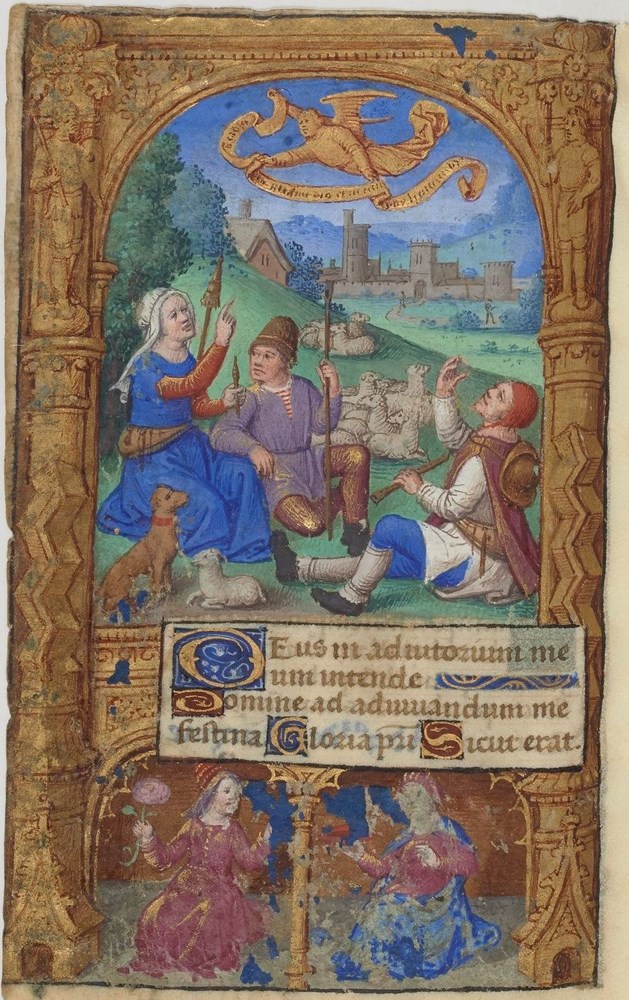 DEus in adiutorium me
um intende
Domine ad adiuuandum me
festina Gloria pri Sicut erat.